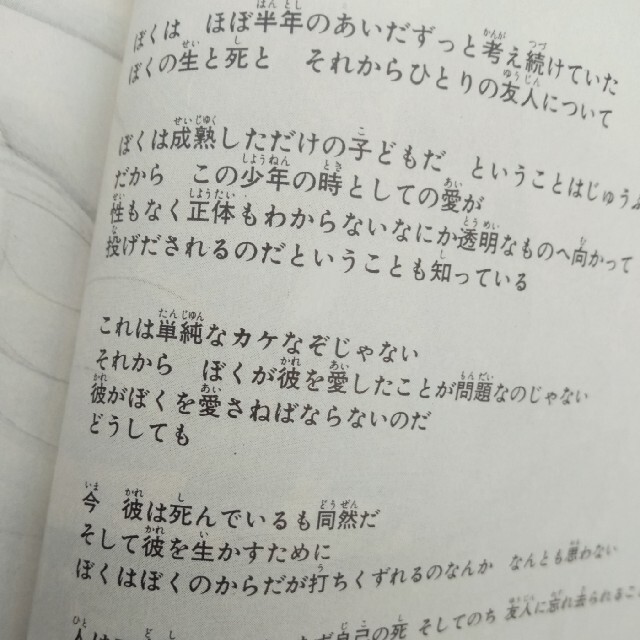 ぼくは　ほぼ半年のあいだずっと考え続けていた
ぼくの生と死と　それからひとりの友人について
ぼくは成熟しただけの子どもだ　ということはじゅうぶ
だから　この少年の時としての愛が
性もなく正体もわからないなにか透明なものへ向かって
投げだされるのだということも知っている
これは単純なカケなぞじゃない
それから　ぼくが彼を愛したことが問題なのじゃない
彼がぼくを愛さねばならないのだ
どうしても
今　彼は死んでいるも同然だ
そして彼を生かすために
ぼくはぼくのからだが打ちくずれるのなんか　なんとも思わない
人は
まず自己の死　そしてのち　友人に忘れ去られるこ